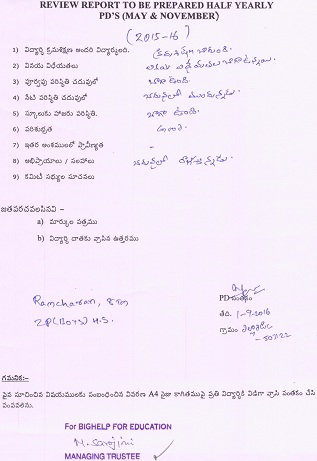 REVIEW REPORT TO BE PREPARED HALF YEARLY
PD'S (MAY & NOVEMBER)
(2015-16)
1) విద్యార్థి క్రమశిక్షణ అందరి విద్యార్థుంది.
2) వినయ విధేయతలు
3) పూర్వపు పరిస్థితి చదువులో బాగా ఉంది.
4) నేటి పరిస్థితి చదువులో
5) స్కూలుకు హాజరు పరిస్థితి. బాగా ఉంది.
6) పరిశుభ్రత
7) ఇతర అంశములలో ప్రావీణ్యత -
8) అభిప్రాయాలు / సలహాలు
9) కమిటీ సభ్యుల సూచనలు
జతపరచవలసినవి –
a) మార్కుల పత్రము
b) విద్యార్థి దాతకు వ్రాసిన ఉత్తరము
Ramcharan, 8th
ZP(Boys) H.S.
PD సంతకం
తేది. 1-9-2016
గ్రామం
గమనిక:-
పైన సూచించిన విషయములకు సంబంధించిన వివరణ A4 సైజు కాగితముపై ప్రతి విద్యార్థికి విడిగా వ్రాసి సంతకం చేసి
పంపవలెను.
For BIGHELP FOR EDUCATION
M. Sarojini
MANAGING TRUSTEE